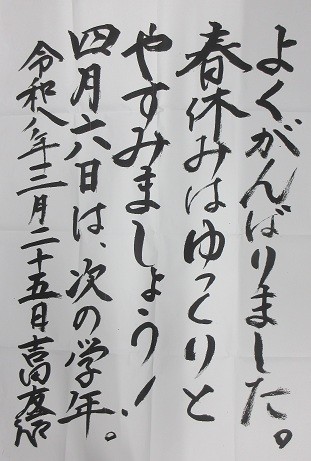 よくがんばりました。
春休みはゆっくりと
やすみましょう!
四月六日は、次の学年。
令和八年三月二十五日